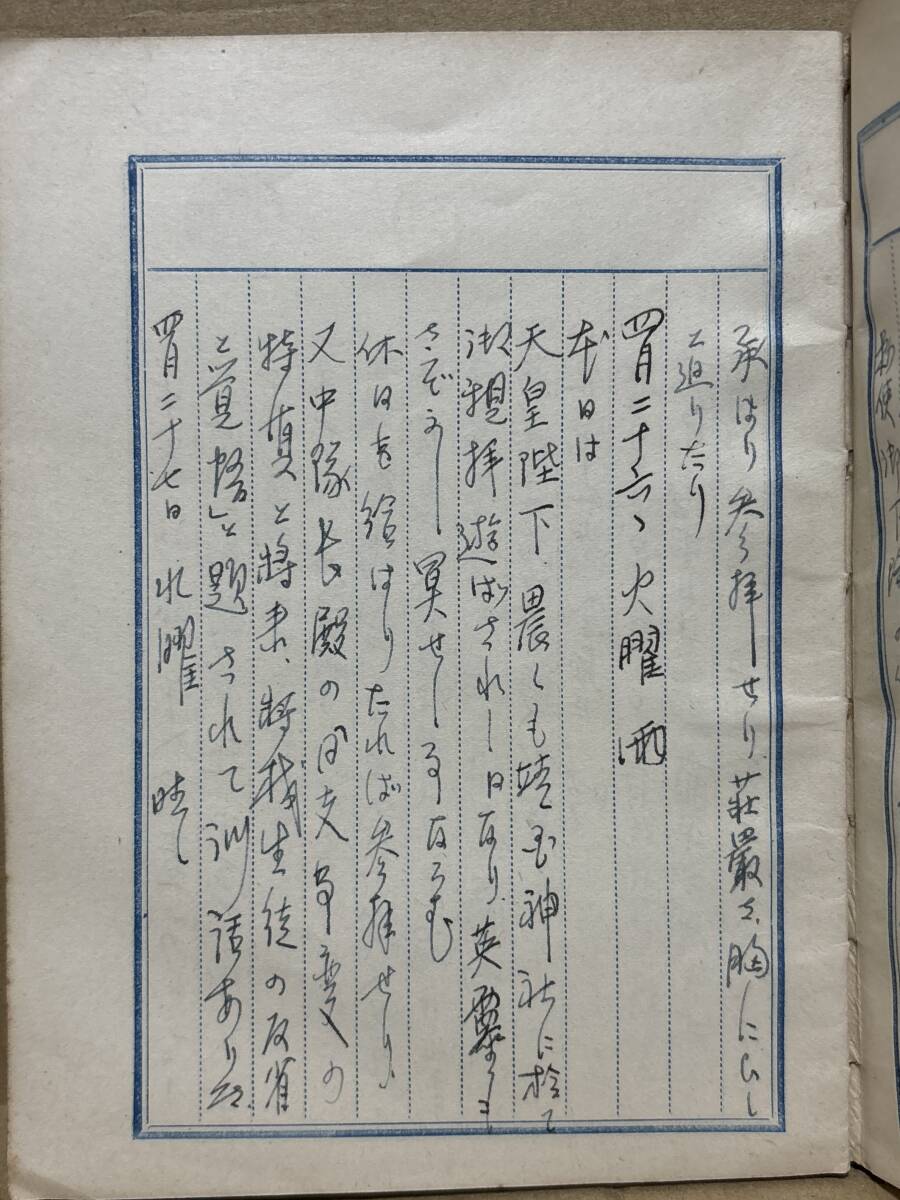 承はり参拝せり、荘厳さ胸にひし
と迫りたり
四月二十六、火曜 雨
本日は
天皇陛下、畏くも靖国神社に於て
御親拝遊ばされし日なり、英霊も
さぞかし冥せしことならむ
休日を給はりたれば参拝せり、
又中隊長殿の「日支事変の
特質と将来、将校生徒の反省
と覚悟」と題されて訓話ありたり
四月二十七日 水曜 晴し
勅使御下